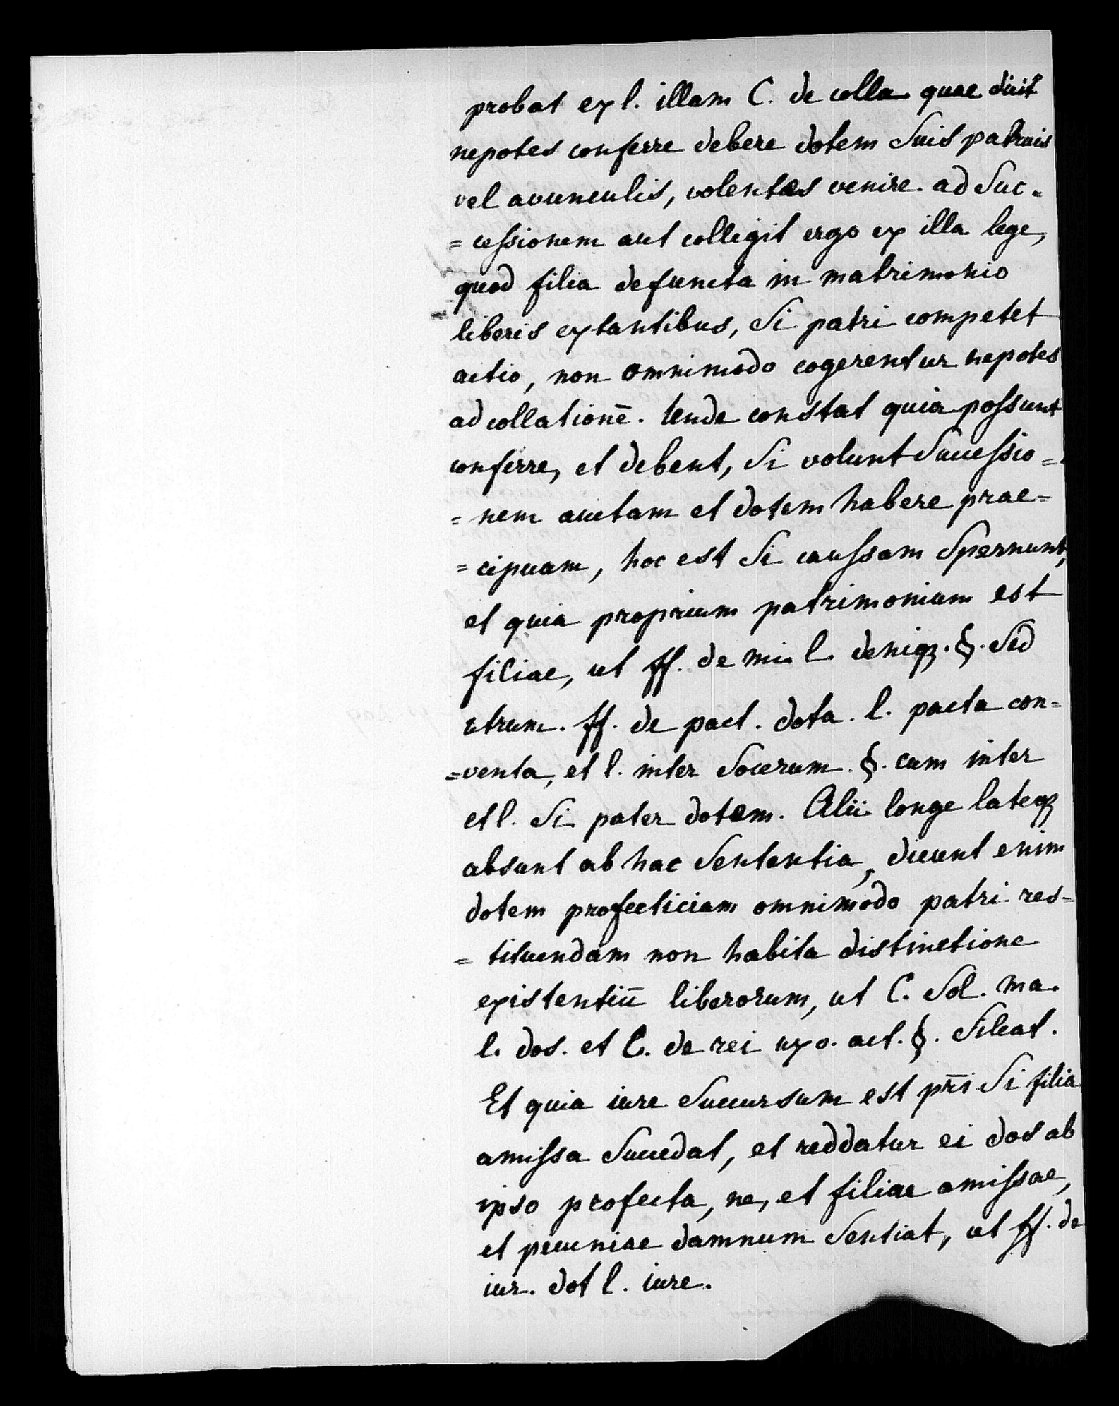 probat ex l. illam C. de colla quae dicit
nepotes conferre debere dotem suis patruis
vel avunculis, volentes venire. ad suc=
=cessionem avt colligit ergo ex illa lege,
quod filia defuncta in matrimonio
liberis extantibus, si patri competet
actio, non omnimodo cogerentur nepotes
ad collationē. Unde constat quia possunt
conferre, et debent, si volunt sucessio=
=nem avitam et dotem habere prae=
=cipuam, hoc est si caussam spernunt,
et quia proprium patrimonium est
filiae, ut ff. de mi. l. deniq. §. sed
utrum. ff. de pact. dota. l. pacta con=
=venta, et l. inter socerum. §. cum inter
et l. si pater dotem. Alii longe lateq
absunt ab hac sententia, dicunt enim
dotem profecticiam omnimodo patri res=
=tituendam non habita distinctione
existentiū liberorum, ut C. sol. ma.
l. dos. et C. de rei uxo. act. §. sileat.
Et quia iure succursum est pr̄i si filia
amissa sucedat, et reddatur ei dos ab
ipso profecta, ne, et filiae amissae,
et pecuniae damnum sentiat, ut ff. de
iur. dot l. iure.